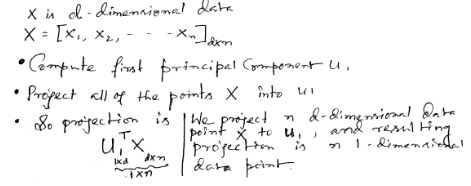 X is d-dimensional data
X = [x₁, x₂, - - - xₙ]dxn
• Compute first principal Component u₁
• Project all of the points X into u1
• So projection is
U₁ᵀX
1xd dxn
1xn
We project n d-dimensional data
point X to u₁, and resulting
projection is n 1-dimensional
data point.